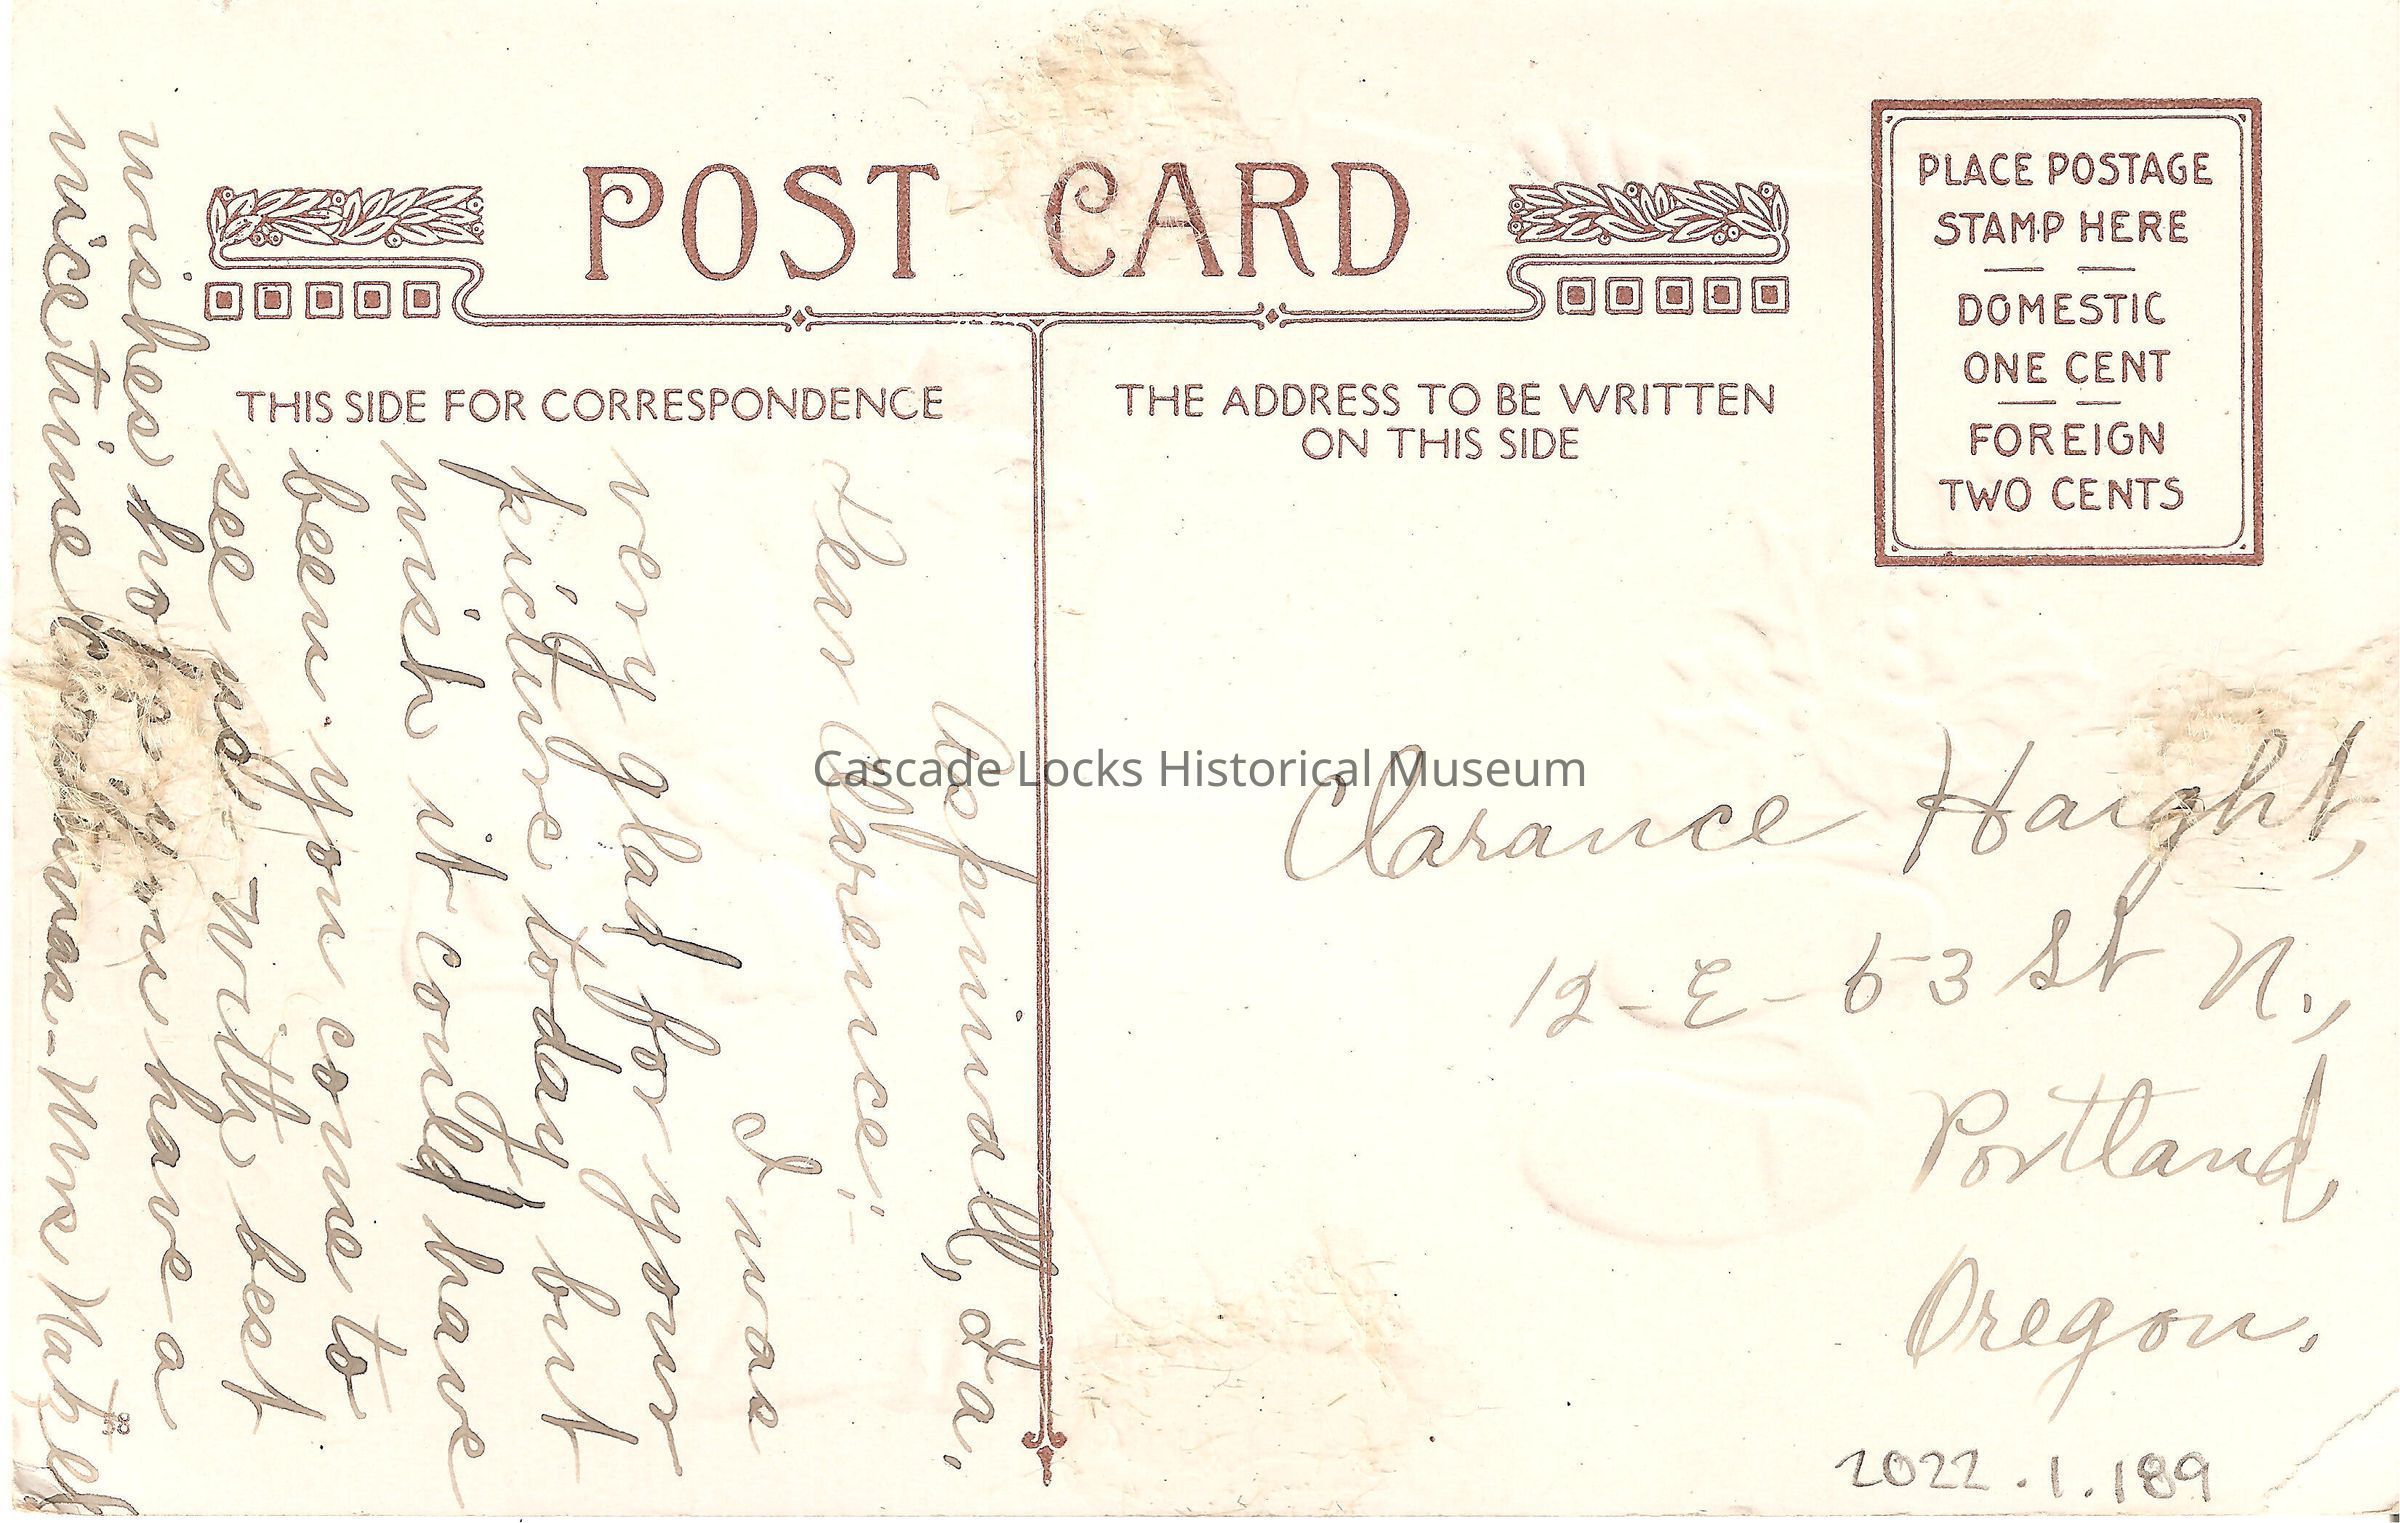 POST CARD
PLACE POSTAGE
STAMP HERE
DOMESTIC
ONE CENT
FOREIGN
TWO CENTS
THIS SIDE FOR CORRESPONDENCE
THE ADDRESS TO BE WRITTEN
ON THIS SIDE
Aspinwall, Ia.
Dear Clarence:-
I was
very glad for your
picture today but
wish it could have
been you come to
see us. With best
wishes hope you have a
nice time Christmas - Mrs Mabel
Clarance Haight,
12-E-53 St N.,
Portland,
Oregon.
2022.1.189
Cascade Locks Historical Museum